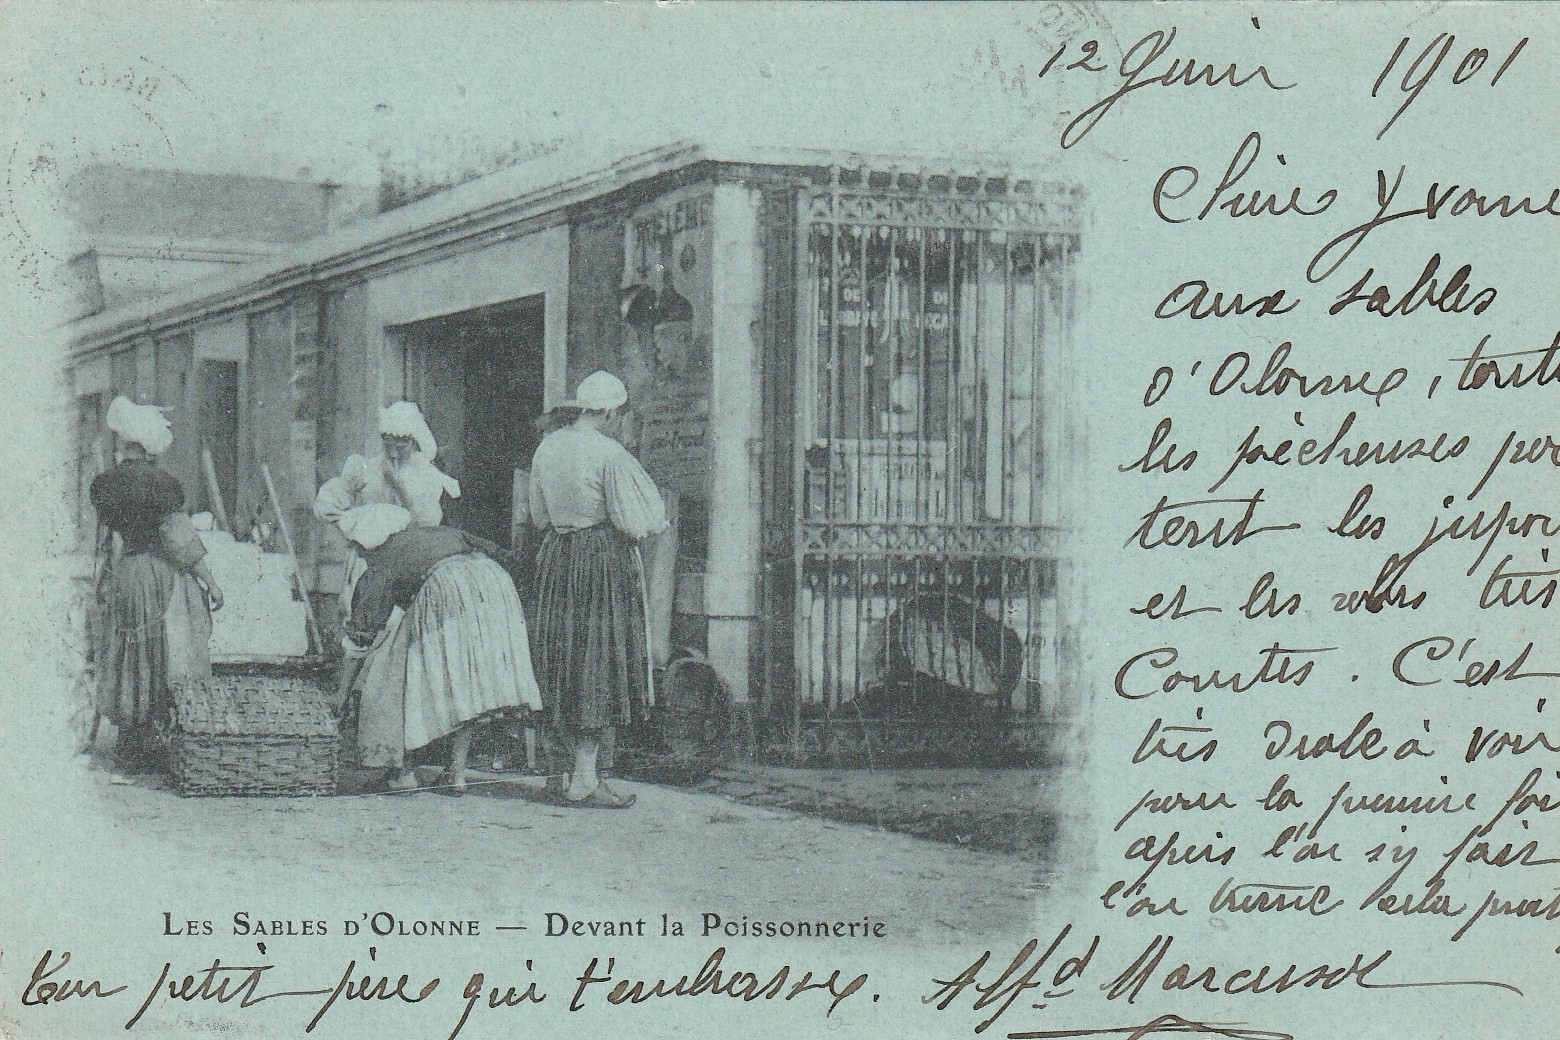 12 Juin 1901
Chère Yvonne
aux sables
d'Olonne, toute
les pêcheuses por
tent les jupon
et les robes très
Courtes. C'est
très drole à voir
pour la première foi
après l'on s'y fait
l'on trouve cela prat
LES SABLES D'OLONNE — Devant la Poissonnerie
Ton petit père qui t'embrasse. Alf.d